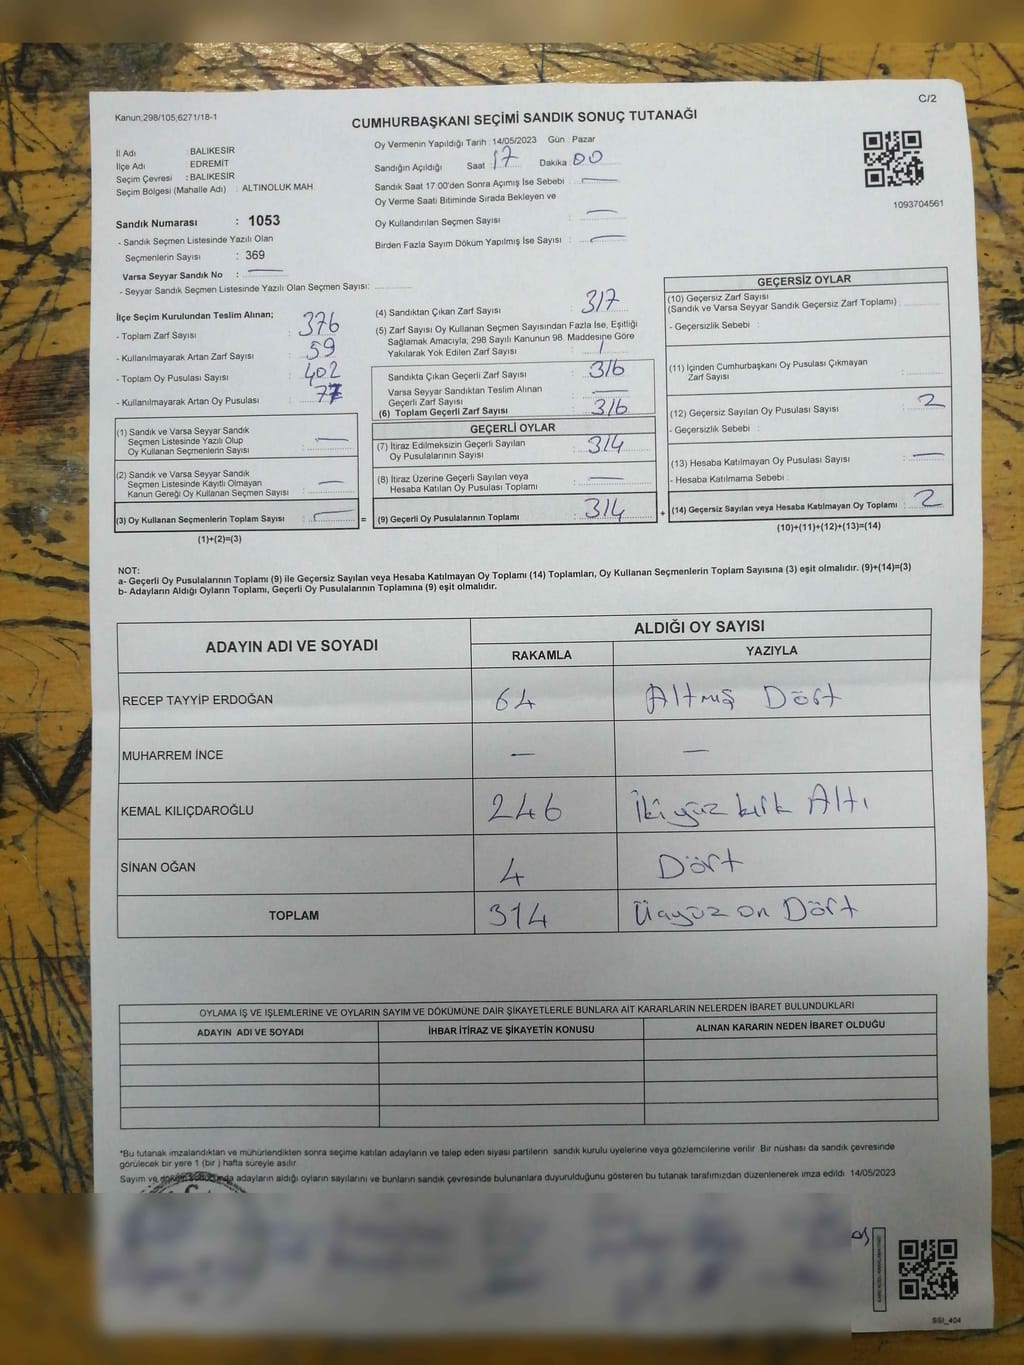 C/2
Kanun;298/105,6271/18-1
CUMHURBAŞKANI SEÇİMİ SANDIK SONUÇ TUTANAĞI
İl Adı : BALIKESİR
İlçe Adı : EDREMİT
Seçim Çevresi : BALIKESİR
Seçim Bölgesi (Mahalle Adı) : ALTINOLUK MAH
Sandık Numarası : 1053
- Sandık Seçmen Listesinde Yazılı Olan
Seçmenlerin Sayısı : 369
Varsa Seyyar Sandık No : —
- Seyyar Sandık Seçmen Listesinde Yazılı Olan Seçmen Sayısı:
Oy Vermenin Yapıldığı Tarih :14/05/2023 Gün : Pazar
Sandığın Açıldığı Saat : 17 Dakika : 00
Sandık Saat 17:00'den Sonra Açımış İse Sebebi : —
Oy Verme Saati Bitiminde Sırada Bekleyen ve
Oy Kullandırılan Seçmen Sayısı : —
Birden Fazla Sayım Döküm Yapılmış İse Sayısı : —
1093704561
İlçe Seçim Kurulundan Teslim Alınan;
- Toplam Zarf Sayısı : 376
- Kullanılmayarak Artan Zarf Sayısı : 59
- Toplam Oy Pusulası Sayısı : 402
- Kullanılmayarak Artan Oy Pusulası : 77
(1) Sandık ve Varsa Seyyar Sandık
Seçmen Listesinde Yazılı Olup
Oy Kullanan Seçmenlerin Sayısı : —
(2) Sandık ve Varsa Seyyar Sandık
Seçmen Listesinde Kayıtlı Olmayan
Kanun Gereği Oy Kullanan Seçmen Sayısı : —
(3) Oy Kullanan Seçmenlerin Toplam Sayısı : —
(1)+(2)=(3)
=
(4) Sandıktan Çıkan Zarf Sayısı : 317
(5) Zarf Sayısı Oy Kullanan Seçmen Sayısından Fazla İse, Eşitliği
Sağlamak Amacıyla; 298 Sayılı Kanunun 98. Maddesine Göre
Yakılarak Yok Edilen Zarf Sayısı : 1
Sandıkta Çıkan Geçerli Zarf Sayısı : 316
Varsa Seyyar Sandıktan Teslim Alınan
Geçerli Zarf Sayısı : —
(6) Toplam Geçerli Zarf Sayısı : 316
GEÇERLİ OYLAR
(7) İtiraz Edilmeksizin Geçerli Sayılan
Oy Pusulalarının Sayısı : 314
(8) İtiraz Üzerine Geçerli Sayılan veya
Hesaba Katılan Oy Pusulası Toplamı : —
(9) Geçerli Oy Pusulalarının Toplamı : 314
+
GEÇERSİZ OYLAR
(10) Geçersiz Zarf Sayısı
(Sandık ve Varsa Seyyar Sandık Geçersiz Zarf Toplamı) :
- Geçersizlik Sebebi :
(11) İçinden Cumhurbaşkanı Oy Pusulası Çıkmayan
Zarf Sayısı :
(12) Geçersiz Sayılan Oy Pusulası Sayısı : 2
- Geçersizlik Sebebi :
(13) Hesaba Katılmayan Oy Pusulası Sayısı : —
- Hesaba Katılmama Sebebi :
(14) Geçersiz Sayılan veya Hesaba Katılmayan Oy Toplamı : 2
(10)+(11)+(12)+(13)=(14)
NOT:
a- Geçerli Oy Pusulalarının Toplamı (9) ile Geçersiz Sayılan veya Hesaba Katılmayan Oy Toplamı (14) Toplamları, Oy Kullanan Seçmenlerin Toplam Sayısına (3) eşit olmalıdır. (9)+(14)=(3)
b- Adayların Aldığı Oyların Toplamı, Geçerli Oy Pusulalarının Toplamına (9) eşit olmalıdır.
ADAYIN ADI VE SOYADI
ALDIĞI OY SAYISI
RAKAMLA YAZIYLA
RECEP TAYYİP ERDOĞAN 64 Altmış Dört
MUHARREM İNCE — —
KEMAL KILIÇDAROĞLU 246 İkiyüz kırk Altı
SİNAN OĞAN 4 Dört
TOPLAM 314 Üçyüz on Dört
OYLAMA İŞ VE İŞLEMLERİNE VE OYLARIN SAYIM VE DÖKÜMÜNE DAİR ŞİKAYETLERLE BUNLARA AİT KARARLARIN NELERDEN İBARET BULUNDUKLARI
ADAYIN ADI VE SOYADI İHBAR İTİRAZ VE ŞİKAYETİN KONUSU ALINAN KARARIN NEDEN İBARET OLDUĞU
*Bu tutanak imzalandıktan ve mühürlendikten sonra seçime katılan adayların ve talep eden siyasi partilerin sandık kurulu üyelerine veya gözlemcilerine verilir. Bir nüshası da sandık çevresinde
görülecek bir yere 1 (bir ) hafta süreyle asılır.
Sayım ve adayların aldığı oyların sayılarını ve bunların sandık çevresinde bulunanlara duyurulduğunu gösteren bu tutanak tarafımızdan düzenlenerek imza edildi. 14/05/2023
SSI_404